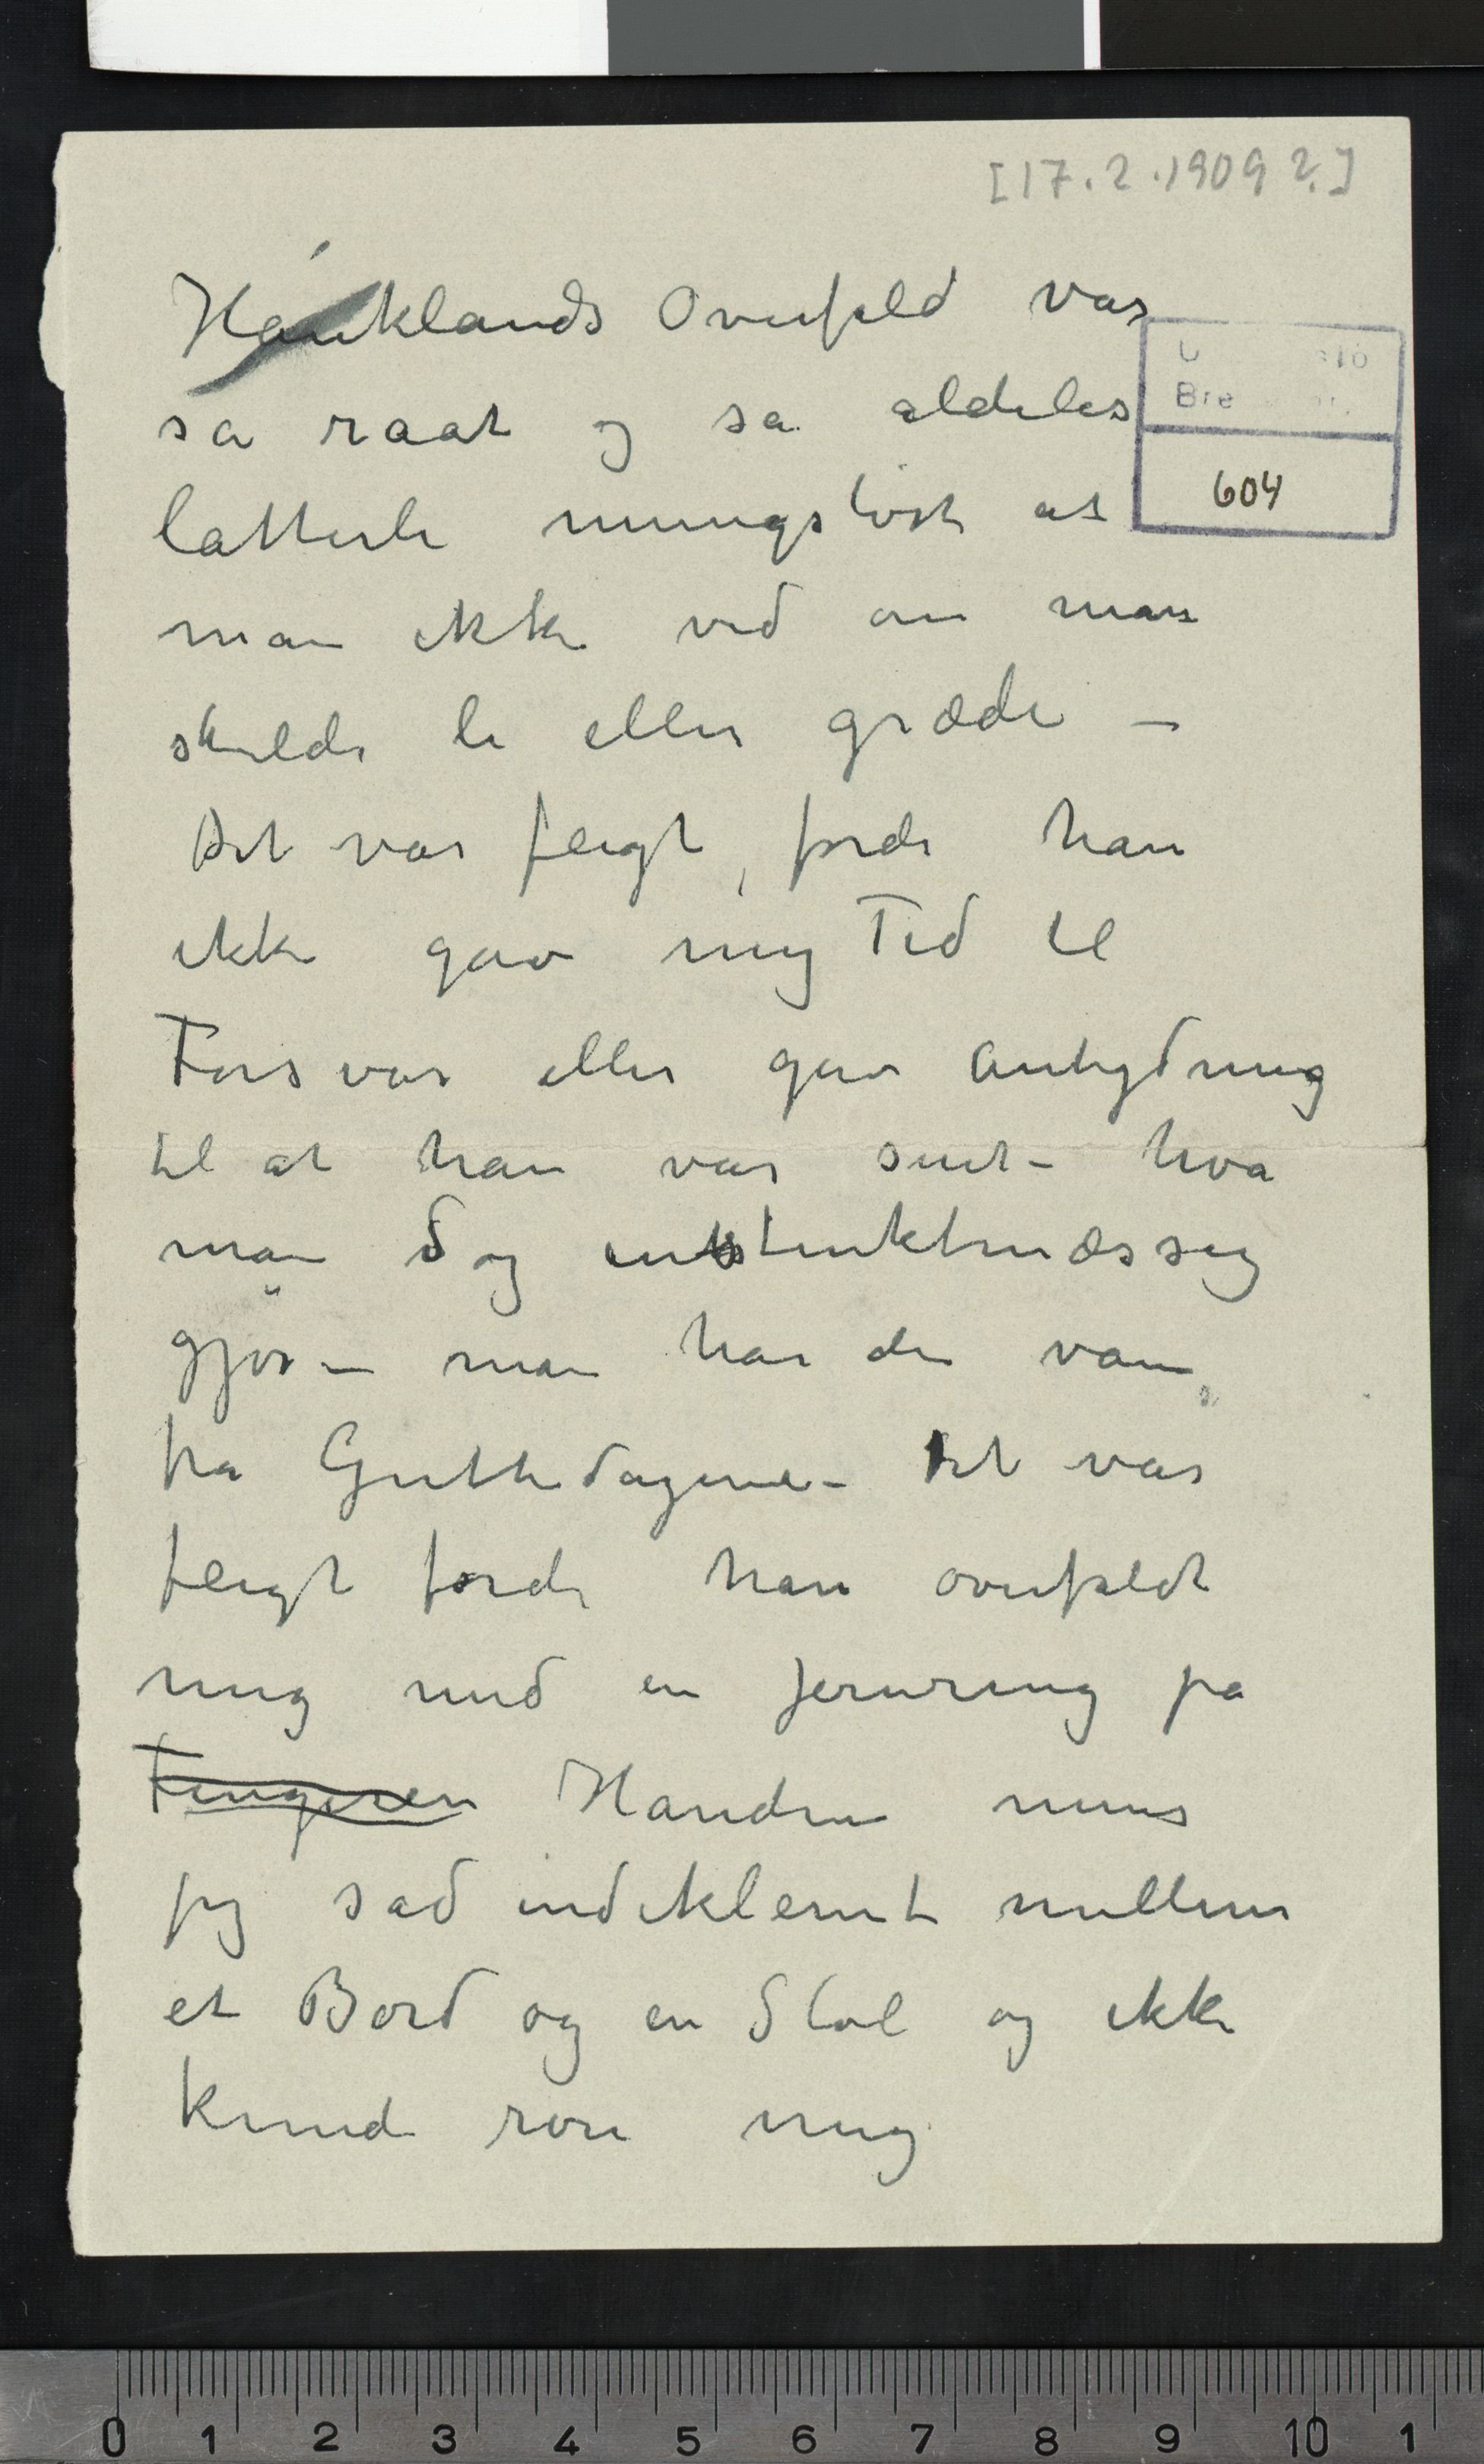 [17.2.1909 ?]
Hauklands Overfald var
sa raat og sa aldeles
latterli meningsløst at
man ikke ved om man
skulde le eller græde –
Det var feigt, fordi han
ikke gav mig Tid til
Forsvar eller gav antydning
til at han var sint – hva
man dog instinktmæssig
gjør – man har den vane
fra Guttedagene – Det var
feigt fordi han overfaldt
mig med en jernring pa
Fingeren Handen mens
jeg sad indeklemt mellem
et Bord og en Stol og ikke
kunde røre mig
Bre
604
0 1 2 3 4 5 6 7 8 9 10 1